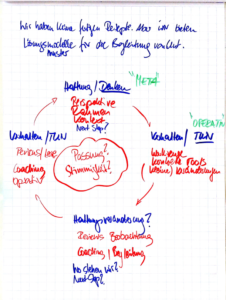 Wir haben keine fertigen Rezepte. Aber wir bieten
Lösungsmodelle für die Begleitung vor Ort.
muster
Haltung / Denken
"META"
Perspektive
Rahmen
Kontext
Next Step?
"OPERATIV"
Verhalten / TUN
Verhalten / TUN
Werkzeuge
konkrete Tools
kleine Veränderungen
Coaching
operativ
Passung?
Stimmigkeit?
Haltungsveränderung?
Beobachtung
Coaching / Begleitung
Wo stehen wir?
Next Step?